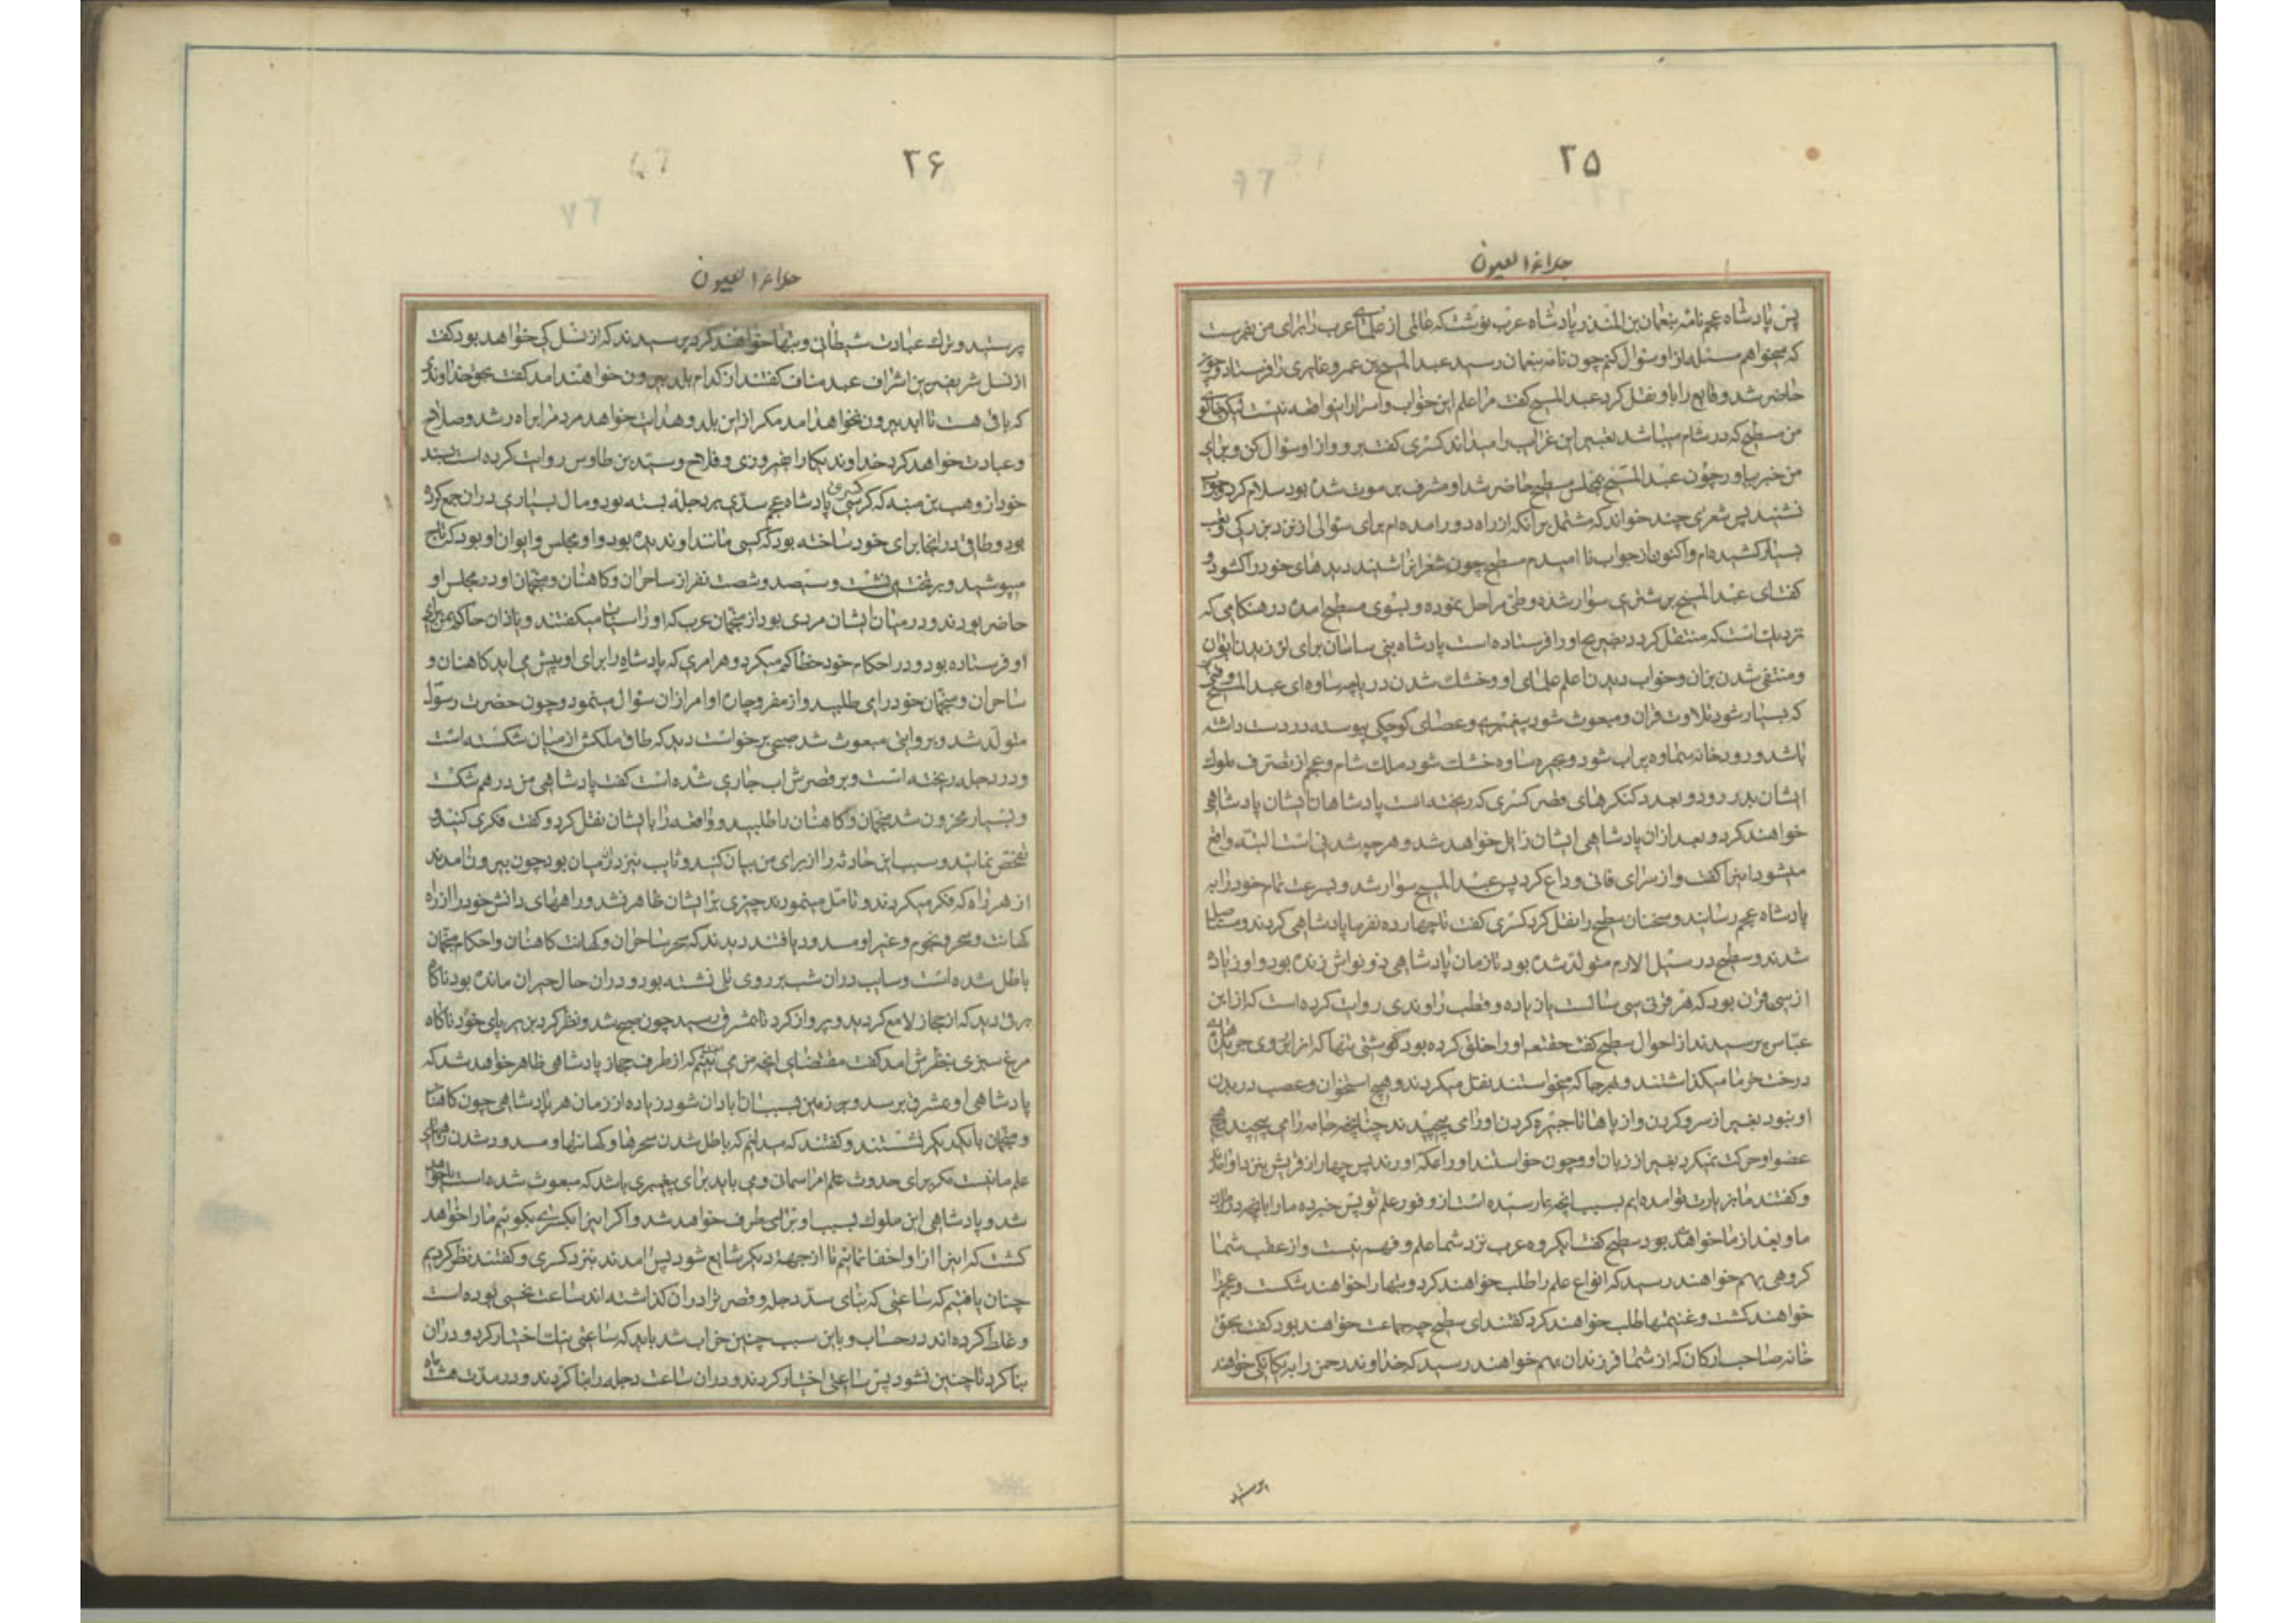 ۲۵
جلاء العیون
پس پادشاه عجم نامه بنعمان بن المنذر پادشاه عرب نوشت که عالمی از علمای عرب را برای من بفرست
که میخواهم مسئله از او سئوال کنم چون نامه بنعمان رسید عبد المسیح بن عمرو غابری را فرستاد و چون
حاضر شد وقایع را باو نقل کرد عبد المسیح گفت مرا علم این خواب و اسرار این واقعه نیست لیکن خالوی
من سطیح که در شام میباشد تعبیر این غرایب را میداند کسری گفت برو و از او سئوال کن و برای
من خبر بیاور چون عبد المسیح بمجلس سطیح حاضر شد او مشرف بر موت شده بود سلام کرد جواب
نشنید پس شعری چند خواند که مشتمل بر آنکه از راه دور امده‌ام برای سئوالی از نزد بزرکی و تعب
بسیار کشیده‌ام و اکنون از جواب نا امیدم سطیح چون شعر او را شنید دیدهای خود را کشود و
کفت ای عبد المسیح بر شتری سوار شده و طی مراحل نموده و بسوی سطیح امده در هنکامی که
نزدیکست که منتقل کردد بضریح او را فرستاده است پادشاه بنی ساسان برای لرزیدن ایوان
و منتفی شدن نیران و خواب دیدن اعلم علمای او و خشك شدن دریاچه ساوه ای عبد المسیح وقتی
که بسیار شود تلاوت قران و مبعوث شود پیغمبری و عصای کوچکی پیوسته در دست داشته
باشد و رودخانه سماوه پر اب شود و بحیره ساوه خشك شود ملك شام و عجم از تصرف ملوك
ایشان بدر رود و بعدد کنکرهای قصر کسری که ریخته است پادشاهان ایشان پادشاهی
خواهند کرد و بعد از ان پادشاهی ایشان زایل خواهد شد و هر چه شدنی است البته واقع
میشود اینرا کفت و از سرای فانی وداع کرد پس عبد المسیح سوار شد و بسرعت تمام خود را به
پادشاه عجم رسانید و سخنان سطیح را نقل کرد کسری کفت تا چهارده نفر ما پادشاهی کردند و
شدند و سطیح در سیل الارم متولد شده بود تا زمان پادشاهی ذو نواش زنده بود و او زیاده
از سی قرن بود که هر قرنی سی سالست یا زیاده و قطب راوندی روایت کرده است که از ابن
عباس پرسیدند از احوال سطیح کفت حقتعالی او را خلق کرده بود کوشتی تنها که او را بر روی جریدهای
درخت خرما میکذاشتند و بهر جا که میخواستند نقل میکردند و هیچ استخوان و عصب در بدن
او نبود بغیر از سر و کردن و از پاها تا چنبره کردن او را می پیچیدند چنانچه جامه را می پیچند هیچ
عضو او حرکت نمیکرد بغیر از زبان او و چون خواستند او را بمکه اورند پس چهار نفر از قریش بنزد او آمدند
و کفتند ما بزیارت تو امده‌ایم بسبب انچه بما رسیده است از وفور علم تو پس خبر ده ما را بانچه در زمان
ما و بعد از ما خواهد بود سطیح کفت ایکروه عرب نزد شما علم و فهم نیست و از عقب شما
کروهی بهم خواهند رسید که انواع علم را طلب خواهند کرد و بتها را خواهند شکست و عجم را
خواهند کشت و غنیمتها طلب خواهند کرد کفتند ای سطیح چه جماعت خواهند بود کفت بحق
خانه صاحب ارکان که از شما فرزندان بهم خواهند رسید که خداوند رحمن را بیکانکی خواهند
پرستید
۲۶
جلاء العیون
پرستید و ترك عبادت شیطان و بتها خواهند کرد پرسیدند که از نسل کی خواهد بود کفت
از نسل شریفترین اشراف عبد مناف کفتند از کدام بلد بیرون خواهند امد کفت بحق خداوندی
که باقی هست تا ابد بیرون نخواهد امد مکر از این بلد و هدایت خواهد مردم را براه رشد و صلاح
و عبادت خواهد کرد خداوند یکتا را بفیروزی و فلاح و سید بن طاوس روایت کرده است بسند
خود از وهب بن منبه که کسری پادشاه عجم سدی بر دجله بسته بود و مال بسیاری در ان جمع کرده
بود و طاقی در انجا برای خود ساخته بود که کسی مانند او ندیده بود و او مجلس و ایوان او بود که تاج
میپوشید و بر تخت می نشست و سیصد و شصت نفر از ساحران و کاهنان و منجمان او در مجلس او
حاضر بودند و در میان ایشان مردی بود از منجمان عرب که او را سایب میکفتند و باذان حاکم یمن برای
او فرستاده بود و در احکام خود خطا کم میکرد و هر امری که پادشاه را برای او پیش می امد کاهنان و
ساحران و منجمان خود را می طلبید و از مفر و چاره او امر از ان سئوال مینمود و چون حضرت رسول
متولد شد و بروایتی مبعوث شد صبحی برخواست دید که طاق ملکش از میان شکسته است
و در دجله ریخته است و بر قصرش اب جاری شده است کفت پادشاهی من درهم شکست
و بسیار محزون شد منجمان و کاهنان را طلبید و واقعه را با ایشان نقل کرد و کفت فکری کنید و
تفحص نمائید و سبب این حادثه را از برای من بیان کنید و سایب نیز در ان میان بود چون بیرون امدند
از هر راه که فکر میکردند و تامل مینمودند چیزی بر ایشان ظاهر نشد و راههای دانش خود را از راه
کهانت و سحر و نجوم و غیر او مسدود یافتند دیدند که سحر ساحران و کهانت کاهنان و احکام منجمان
باطل شده است و سایب در ان شب بر روی تلی نشسته بود و در ان حال حیران مانده بود ناکاه
برقی دید که از حجاز لامع کردید و پرواز کرد تا بمشرق رسید چون صبح شد و نظر کرد بزیر پای خود ناکاه
مرغ سبزی بنظرش امد کفت مقتضای انچه من می بینم انست که از طرف حجاز پادشاهی ظاهر خواهد شد که
پادشاهی او بمشرق برسد و زمین بسبب او ابادان شود زیاده از زمان هر پادشاهی چون کاهنان
و منجمان با یکدیکر نشستند و کفتند که میدانیم که باطل شدن سحرها و کهانتها و مسدود شدن راههای
علم ما نیست مکر برای حدوث علم امر اسمانی و می باید برای پیغمبری باشد که مبعوث شده است یا خواهد
شد و پادشاهی این ملوك بسبب او برطرف خواهد شد و اکر اینرا بکسری بکوئیم ما را خواهد
کشت که اینرا از او اخفا نمائیم تا از جهة دیکر شایع شود پس امدند بنزد کسری و کفتند نظر کردیم
چنان یافتیم که ساعتی که بنای سد دجله و قصر ترا در ان کذاشته اند ساعت نحسی بوده است
و غلط کرده اند در حساب و باین سبب چنین خراب شد باید که ساعتی نیك اختیار کرد و در ان
بنا کرد تا چنین نشود پس ساعتی اختیار کردند و در ان ساعت دجله را بنا کردند و در مدت هشت ماه